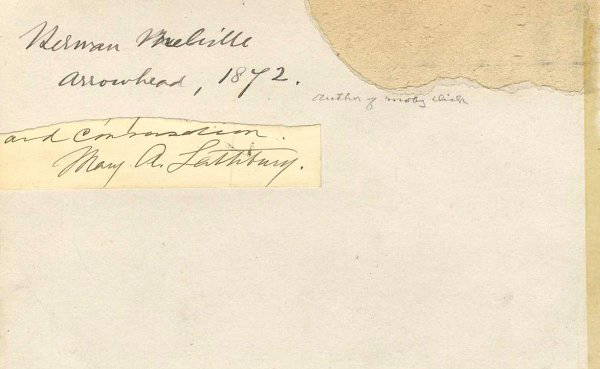 Herman Melville
Arrowhead, 1872.
author of moby dick
and conversation.
Mary A. Lathbury.